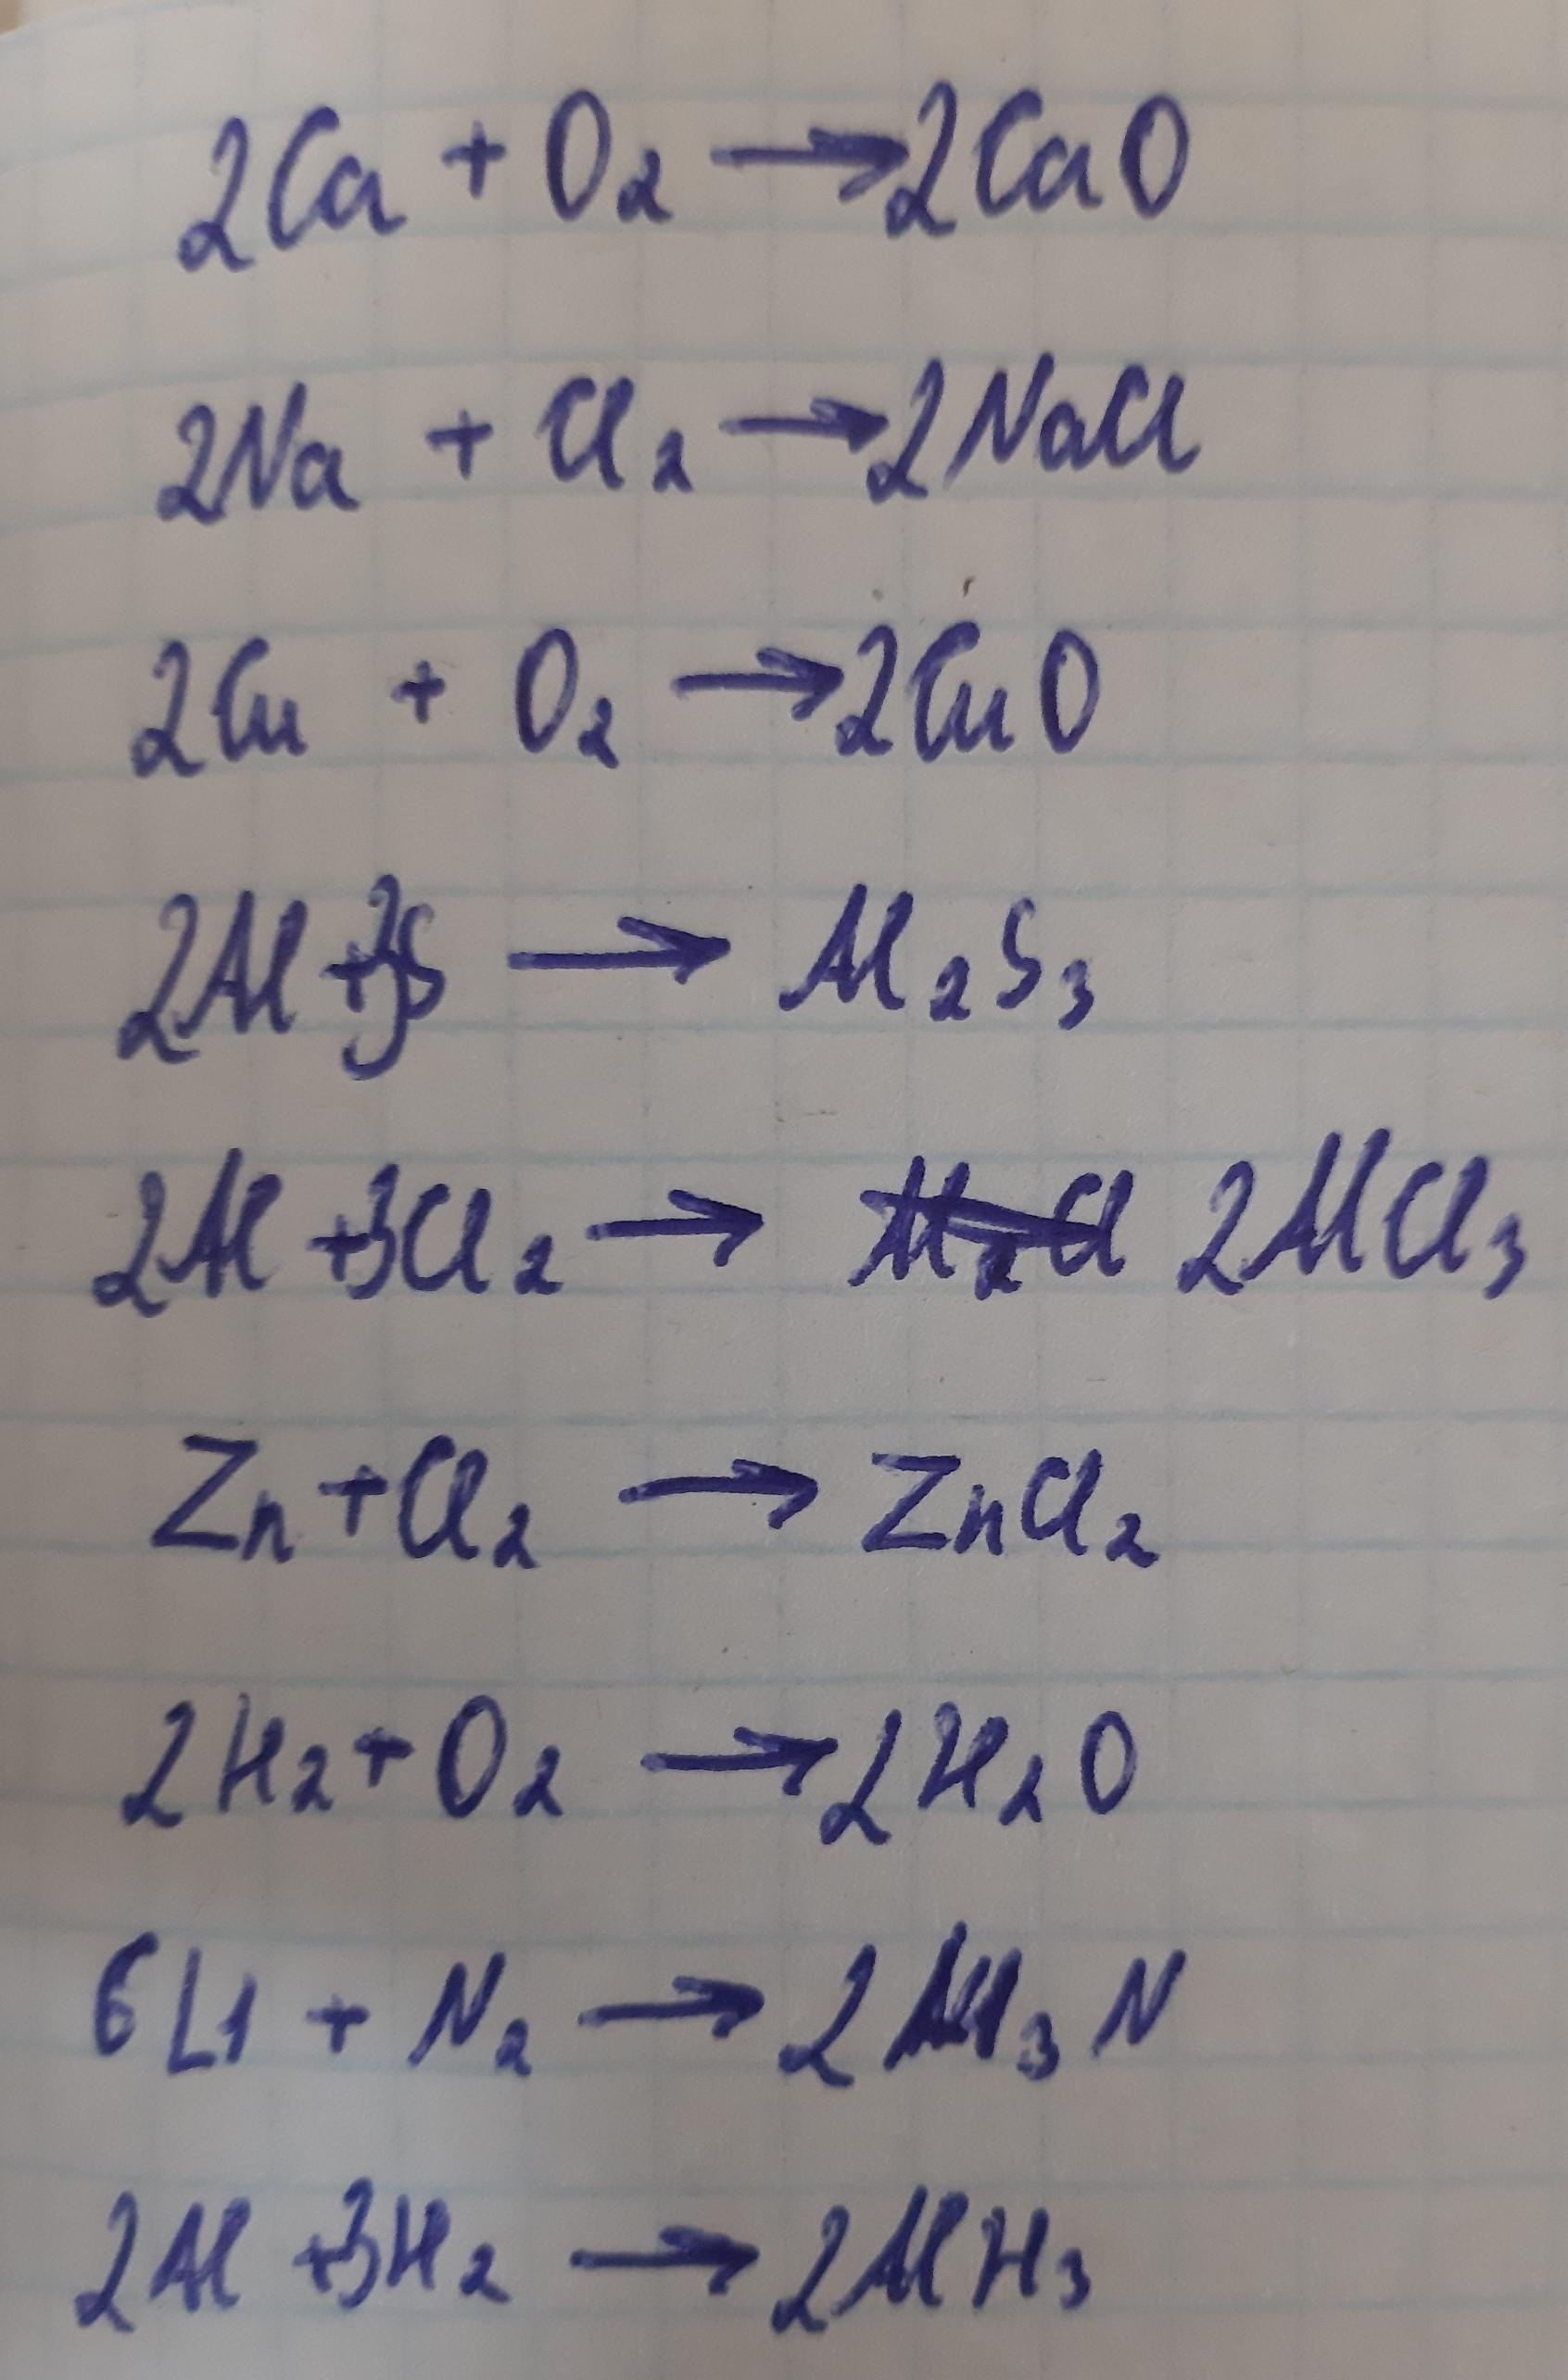 2Ca + O₂ → 2CaO
2Na + Cl₂ → 2NaCl
2Cu + O₂ → 2CuO
2Al + 3S → Al₂S₃
2Al + 3Cl₂ → 2AlCl₃
Zn + Cl₂ → ZnCl₂
2H₂ + O₂ → 2H₂O
6Li + N₂ → 2Li₃N
2Al + 3H₂ → 2AlH₃